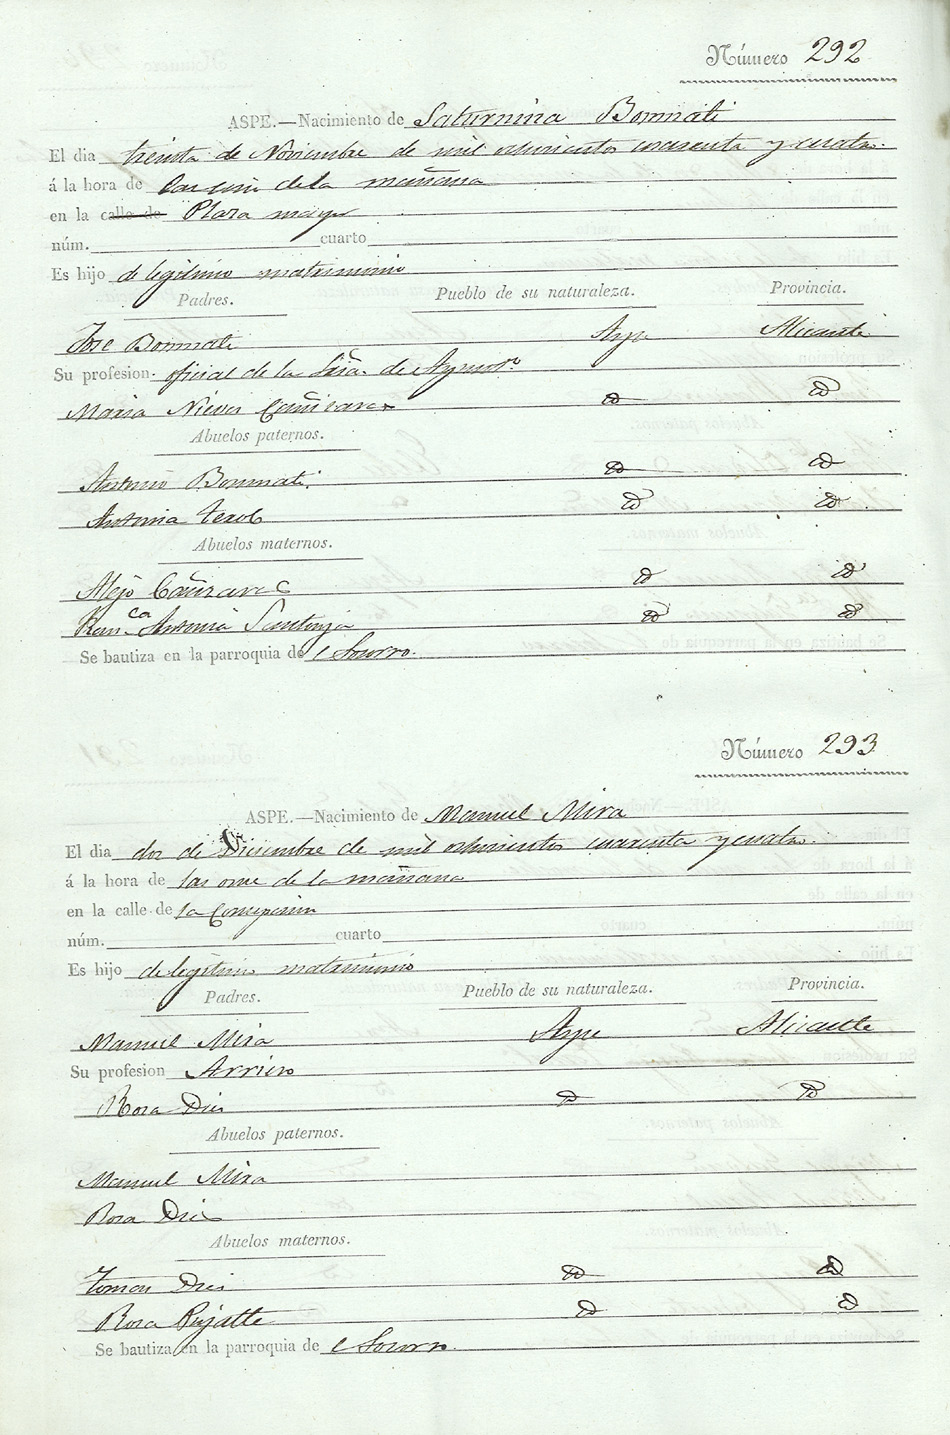 Número 292
ASPE.—Nacimiento de Saturnina Bonmati
El dia treinta de Noviembre de mil ochocientos cuarenta y cuatro.
á la hora de las de la mañana
en la calle de Plaza mayor
núm. cuarto
Es hijo de legitimo matrimonio
Padres. Pueblo de su naturaleza. Provincia.
Jose Bonmati Aspe Alicante
Su profesion. oficial de la Sria. de Ayunto.
Maria Nieves Cañizares id id
Abuelos paternos.
Antonio Bonmati. id id
Antonia Terol id id
Abuelos maternos.
Alejo Cañizares id id
Franca Antonia Santonja id id
Se bautiza en la parroquia del Socorro.
Número 293
ASPE.—Nacimiento de Manuel Mira
El dia dos de Diciembre de mil ochocientos cuarenta y cuatro.
á la hora de las once de la mañana
en la calle de la Concepcion
núm. cuarto
Es hijo de legitimo matrimonio
Padres. Pueblo de su naturaleza. Provincia.
Manuel Mira Aspe Alicante
Su profesion Arriero
Rosa Dies id id
Abuelos paternos.
Manuel Mira
Rosa Dies
Abuelos maternos.
Tomas Dies id id
Rosa Pujalte id id
Se bautiza en la parroquia del Socorro.